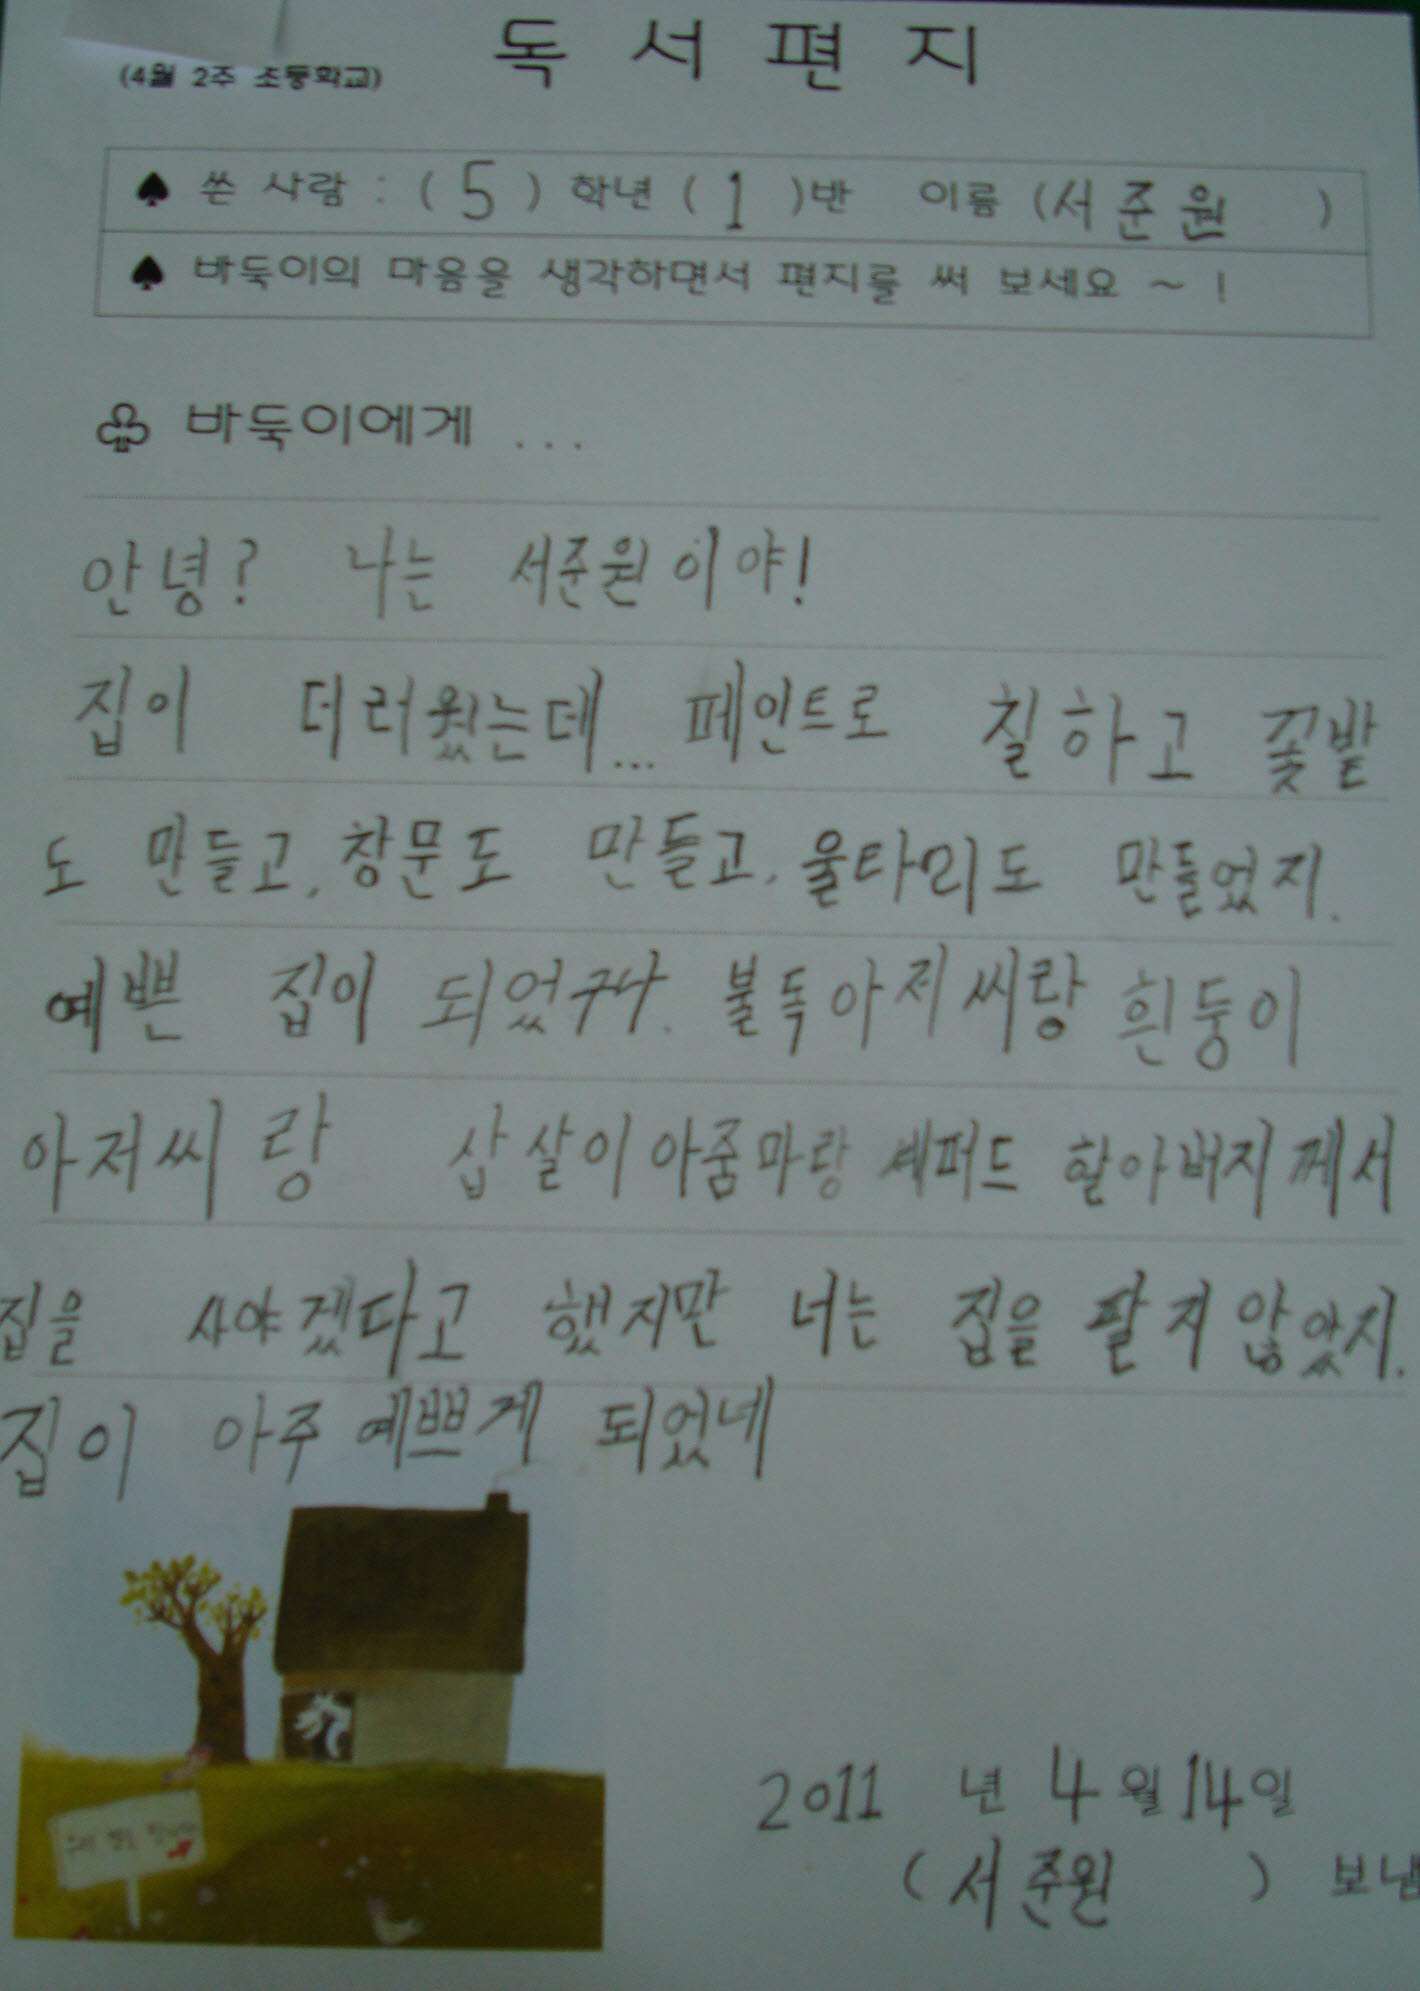 독서편지
(4월 2주 초등학교)
♠ 쓴 사람 : ( 5 ) 학년 ( 1 )반 이름 (서준원 )
♠ 바둑이의 마음을 생각하면서 편지를 써 보세요 ~ !
♧ 바둑이에게 ...
안녕? 나는 서준원이야!
집이 더러웠는데... 페인트로 칠하고 꽃밭
도 만들고, 창문도 만들고, 울타리도 만들었지.
예쁜 집이 되었구나. 불독아저씨랑 흰둥이
아저씨랑 삽살이아줌마랑 셰퍼드 할아버지께서
집을 사야겠다고 했지만 너는 집을 팔지 않았지.
집이 아주 예쁘게 되었네
2011 년 4 월 14일
( 서준원 ) 보냄